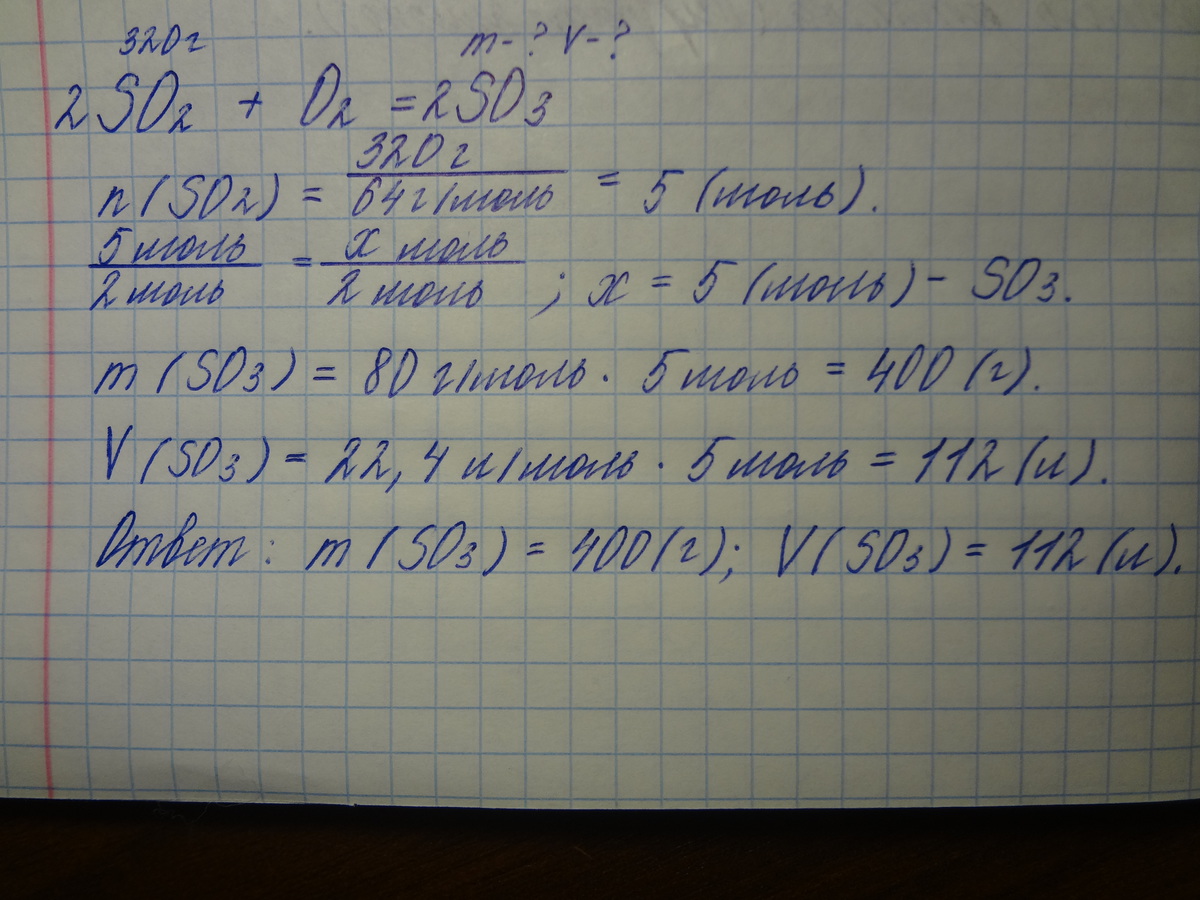 320г m-? V-?
2SO₂ + O₂ = 2SO₃
n(SO₂) = 320г / 64г/моль = 5 (моль).
5 моль / 2 моль = x моль / 2 моль ; x = 5 (моль) - SO₃.
m (SO₃) = 80 г/моль · 5 моль = 400 (г).
V (SO₃) = 22,4 л/моль · 5 моль = 112 (л).
Ответ: m (SO₃) = 400 (г); V (SO₃) = 112 (л).